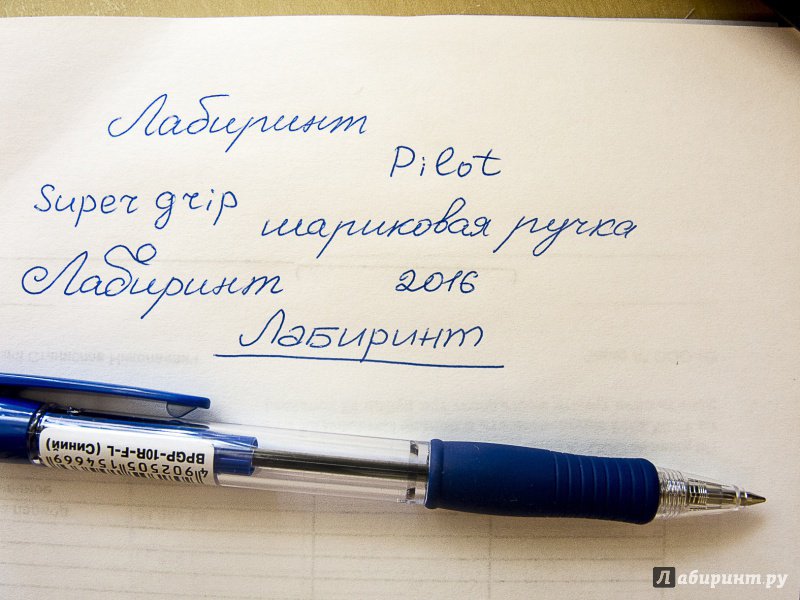 Лабиринт
Pilot
Super grip шариковая ручка
Лабиринт 2016
Лабиринт
BPGP-10R-F-L (Синий)
4902505154669
Лабиринт.ру